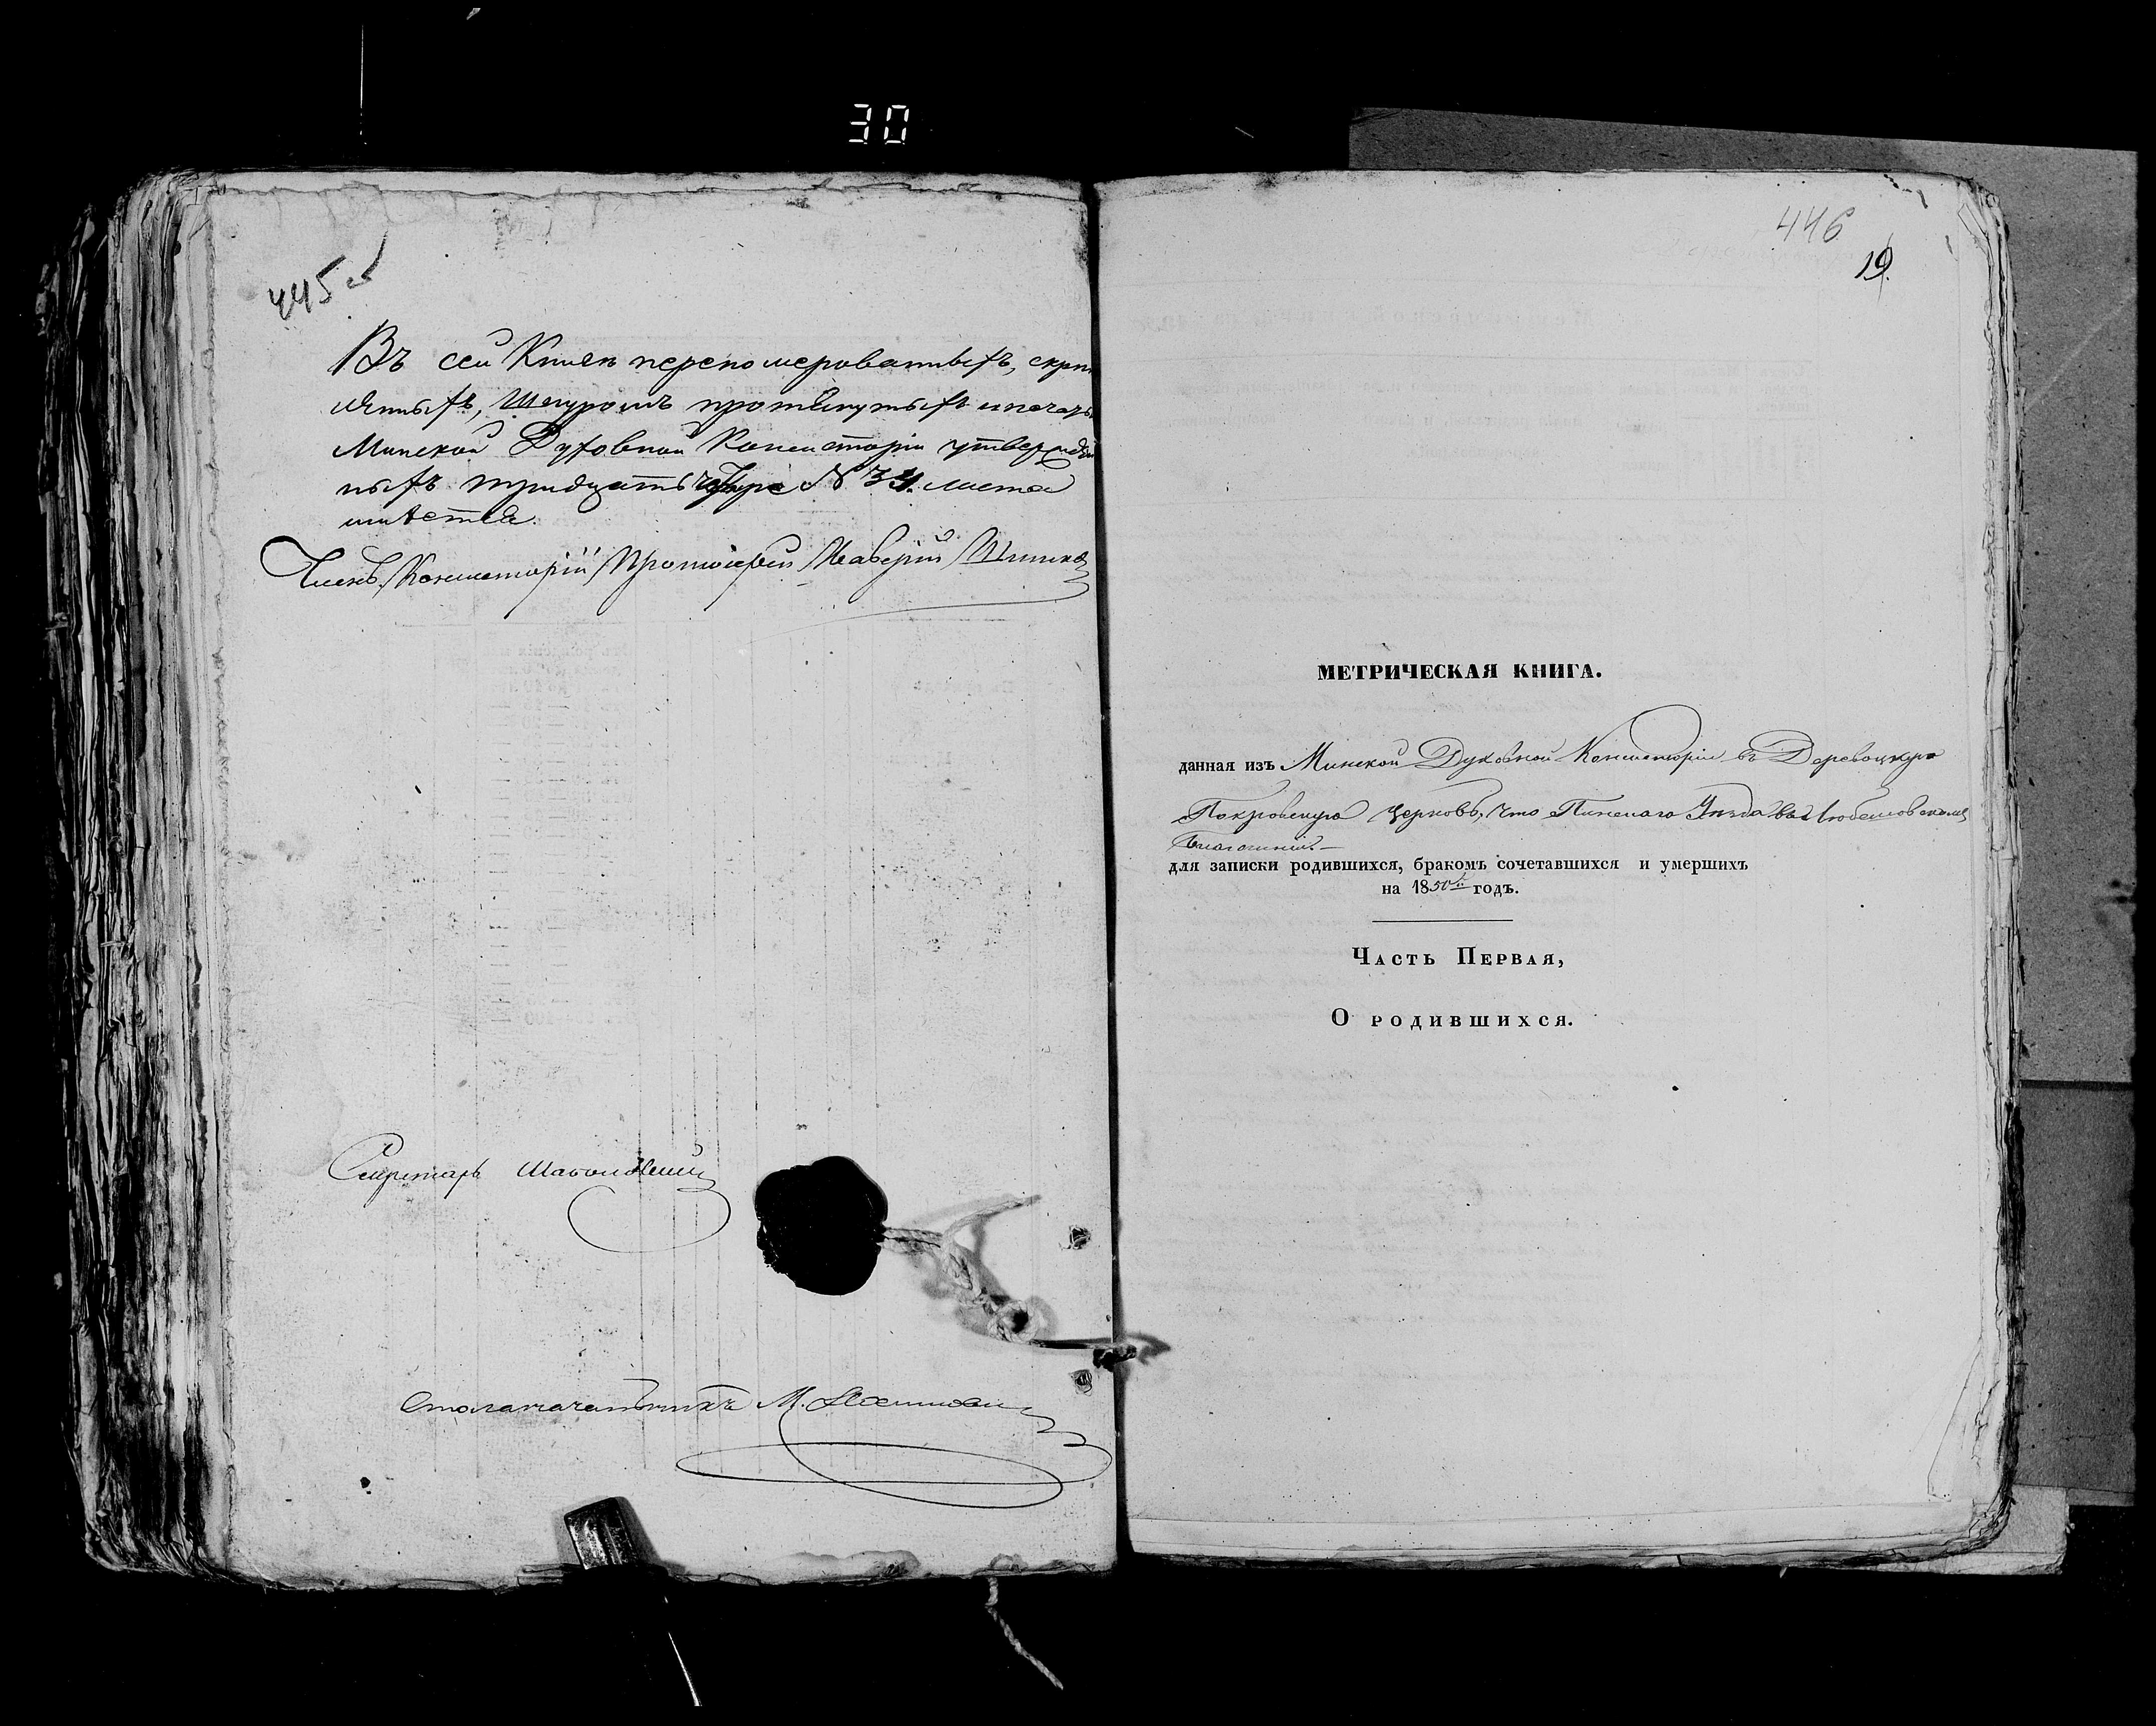 30
445 об
Въ сей Книгѣ переномерованныхъ, скрѣп
ленныхъ, Шнуромъ протянутыхъ и печатью
Минской Духовной Консисторіи утвержден
ныхъ тридцать четыре № 34. листа
имѣется.
Членъ Консисторіи Протоіерей
Секретарь
Столоначальникъ М.
446
19.
МЕТРИЧЕСКАЯ КНИГА.
данная изъ Минской Духовной Консисторіи въ Деревоцкую
Покровскую церковь, что Пинскаго Уѣзда въ Любешовскомъ
Благочиніи.—
для записки родившихся, бракомъ сочетавшихся и умершихъ
на 1850й годъ.
Часть Первая,
О родившихся.